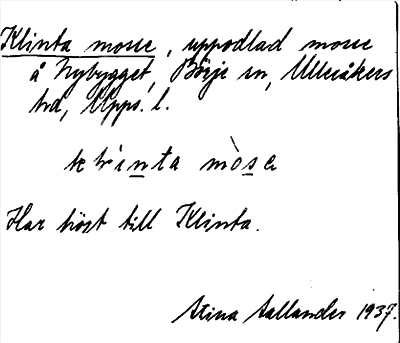 Klinta mosse, uppodlad mosse
å Nybygget, Börje sn, Ulleråkers
hd, Upps. l.
mòse
Har hört till Klinta.
Stina Sallander 1937.